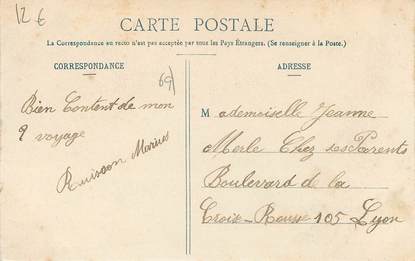 12 €
CARTE POSTALE
La Correspondance au recto n'est pas acceptée par tous les Pays Étrangers. (Se renseigner à la Poste.)
CORRESPONDANCE
69)
Bien Content de mon
voyage
Marius
ADRESSE
Mademoiselle Jeanne
Merle Chez ses Parents
Boulevard de la
Croix-Rousse 105 Lyon